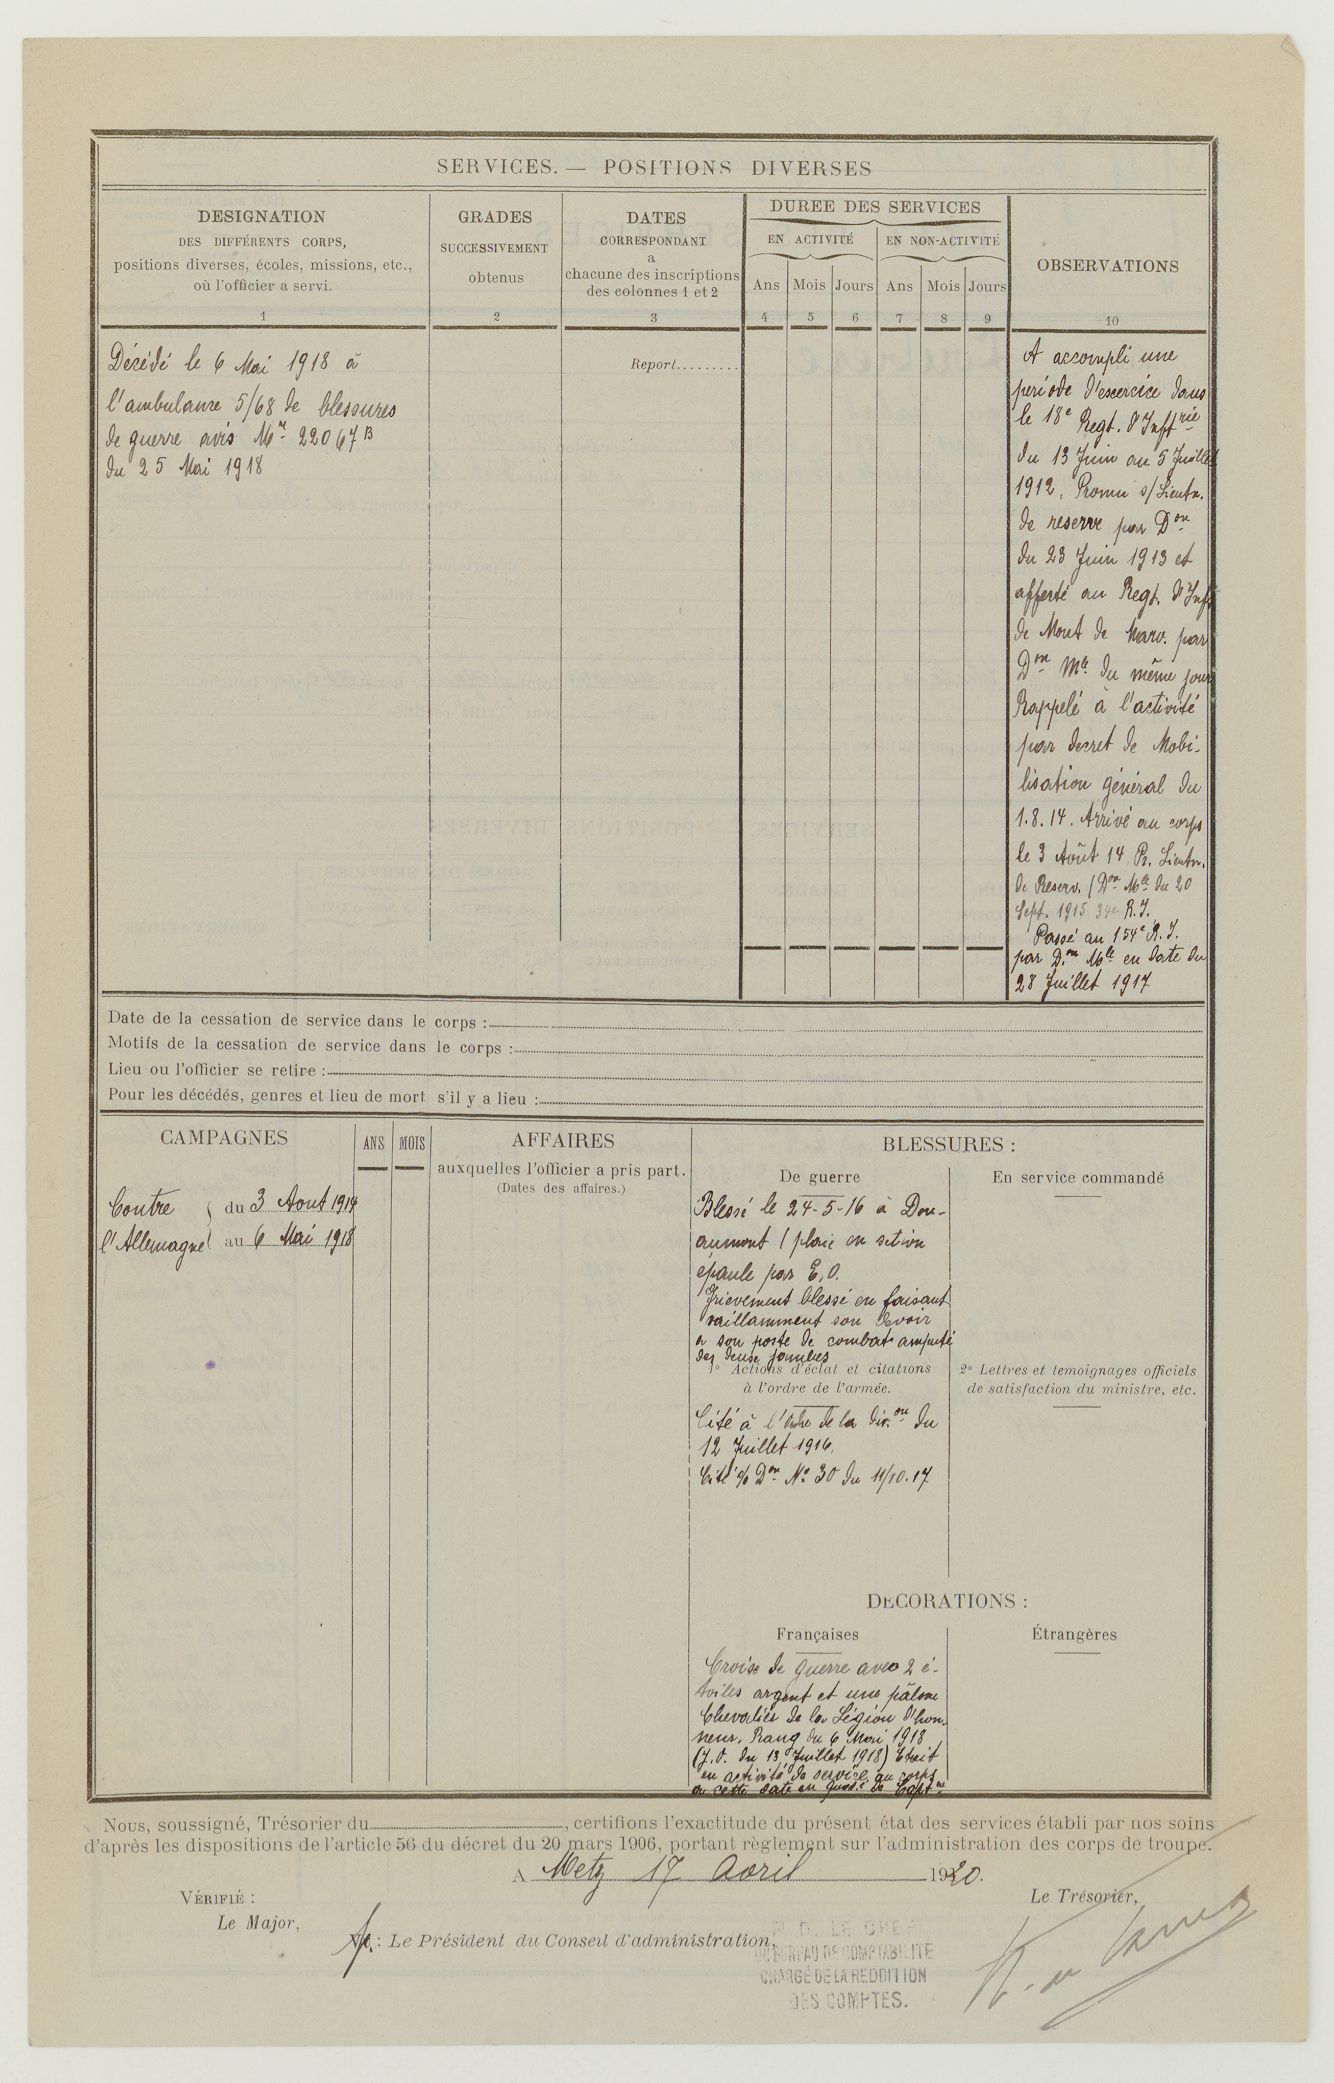 SERVICES. — POSITIONS DIVERSES
DESIGNATION
DES DIFFÉRENTS CORPS,
positions diverses, écoles, missions, etc.,
où l'officier a servi.
GRADES
SUCCESSIVEMENT
obtenus
DATES
CORRESPONDANT
a
chacune des inscriptions
des colonnes 1 et 2
DUREE DES SERVICES
EN ACTIVITÉ
EN NON-ACTIVITÉ
Ans Mois Jours Ans Mois Jours
OBSERVATIONS
1 2 3 4 5 6 7 8 9 10
Décédé le 6 Mai 1918 à
l'ambulance 5/68 de blessures
de guerre avis Mel 22067 B
du 25 Mai 1918
Report.........
A accompli une
période d'exercice dans
le 18e Regt. d'Inftrie
du 13 Juin au 5 Juillet
1912, Promu s/Lieutn.
de reserve par Don
du 23 Juin 1913 et
affecté au Regt. d'Inf.
de Mont de Marv. par
Don Mle du même jour
Rappelé à l'activité
par decret de Mobi-
lisation général du
1.8.14. Arrivé au corps
le 3 Août 14. Pr. Lieutn.
de Reserv. (Don Mle du 20
Sept. 1915 34e R.I.
Passé au 154e R.I.
par Don Mle en date du
28 Juillet 1917
Date de la cessation de service dans le corps :
Motifs de la cessation de service dans le corps :
Lieu ou l'officier se retire :
Pour les décédés, genres et lieu de mort s'il y a lieu :
CAMPAGNES
ANS
MOIS
AFFAIRES
auxquelles l'officier a pris part.
(Dates des affaires.)
BLESSURES :
De guerre
En service commandé
Contre du 3 Aout 1914
l'Allemagne au 6 Mai 1918
Blessé le 24-5-16 à Dou-
aumont (plaie en seton
épaule par E.O.
Grièvement blessé en faisant
vaillamment son devoir
a son poste de combat amputé
des deux jambes
1º Actions d'éclat et citations
à l'ordre de l'armée.
2º Lettres et temoignages officiels
de satisfaction du ministre, etc.
Cité à l'ordre de la div.on du
12 Juillet 1916.
Cité % Don No 30 du 11/10.17
DECORATIONS :
Françaises
Étrangères
Croix de guerre avec 2 é-
toiles argent et une pâlme
Chevalier de la Légion d'hon-
neur. Rang du 6 Mai 1918
(J.O. du 13 Juillet 1918) Etait
en activité de service au corps
a cette date en qual.é de Capt.ne
Nous, soussigné, Trésorier du , certifions l'exactitude du présent état des services établi par nos soins
d'après les dispositions de l'article 56 du décret du 20 mars 1906, portant règlement sur l'administration des corps de troupe.
A Metz 17 Avril 1920.
VÉRIFIÉ :
Le Major,
Le Trésorier,
: Le Président du Conseil d'administration,
P. O. LE CHEF
DU BUREAU DE COMPTABILITÉ
CHARGÉ DE LA REDDITION
DES COMPTES.